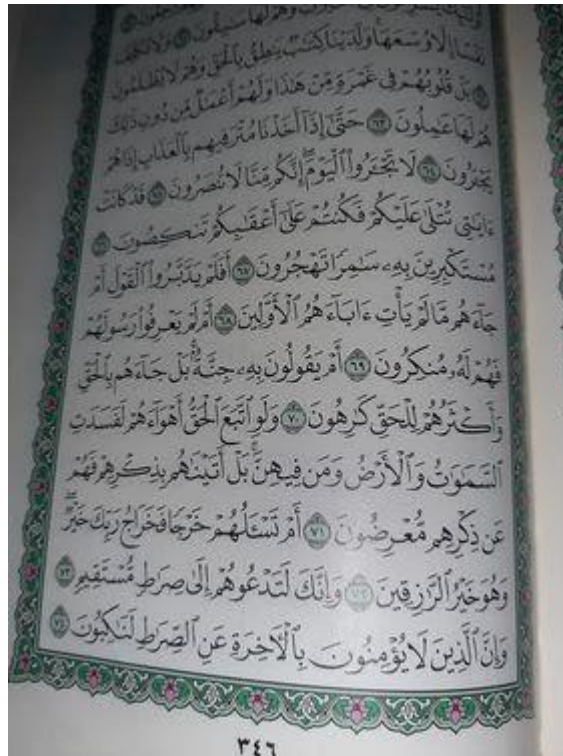 أُو۟لَـٰٓئِكَ يُسَـٰرِعُونَ وَهُمْ لَهَا سَـٰبِقُونَ ٦١ وَلَا نُكَلِّفُ
نَفْسًا إِلَّا وُسْعَهَا وَلَدَيْنَا كِتَـٰبٌ يَنطِقُ بِٱلْحَقِّ وَهُمْ لَا يُظْلَمُونَ
٦٢ بَلْ قُلُوبُهُمْ فِى غَمْرَةٍ مِّنْ هَـٰذَا وَلَهُمْ أَعْمَـٰلٌ مِّن دُونِ ذَٰلِكَ
هُمْ لَهَا عَـٰمِلُونَ ٦٣ حَتَّىٰٓ إِذَآ أَخَذْنَا مُتْرَفِيهِم بِٱلْعَذَابِ إِذَا هُمْ
يَجْـَٔرُونَ ٦٤ لَا تَجْـَٔرُوا۟ ٱلْيَوْمَ إِنَّكُم مِّنَّا لَا تُنصَرُونَ ٦٥ قَدْ كَانَتْ
ءَايَـٰتِى تُتْلَىٰ عَلَيْكُمْ فَكُنتُمْ عَلَىٰٓ أَعْقَـٰبِكُمْ تَنكِصُونَ ٦٦
مُسْتَكْبِرِينَ بِهِۦ سَـٰمِرًا تَهْجُرُونَ ٦٧ أَفَلَمْ يَدَّبَّرُوا۟ ٱلْقَوْلَ أَمْ
جَآءَهُم مَّا لَمْ يَأْتِ ءَابَآءَهُمُ ٱلْأَوَّلِينَ ٦٨ أَمْ لَمْ يَعْرِفُوا۟ رَسُولَهُمْ
فَهُمْ لَهُۥ مُنكِرُونَ ٦٩ أَمْ يَقُولُونَ بِهِۦ جِنَّةٌۢ بَلْ جَآءَهُم بِٱلْحَقِّ
وَأَكْثَرُهُمْ لِلْحَقِّ كَـٰرِهُونَ ٧٠ وَلَوِ ٱتَّبَعَ ٱلْحَقُّ أَهْوَآءَهُمْ لَفَسَدَتِ
ٱلسَّمَـٰوَٰتُ وَٱلْأَرْضُ وَمَن فِيهِنَّ بَلْ أَتَيْنَـٰهُم بِذِكْرِهِمْ فَهُمْ
عَن ذِكْرِهِم مُّعْرِضُونَ ٧١ أَمْ تَسْـَٔلُهُمْ خَرْجًا فَخَرَاجُ رَبِّكَ خَيْرٌ
وَهُوَ خَيْرُ ٱلرَّٰزِقِينَ ٧٢ وَإِنَّكَ لَتَدْعُوهُمْ إِلَىٰ صِرَٰطٍ مُّسْتَقِيمٍ ٧٣
وَإِنَّ ٱلَّذِينَ لَا يُؤْمِنُونَ بِٱلْـَٔاخِرَةِ عَنِ ٱلصِّرَٰطِ لَنَـٰكِبُونَ ٧٤
٣٤٦